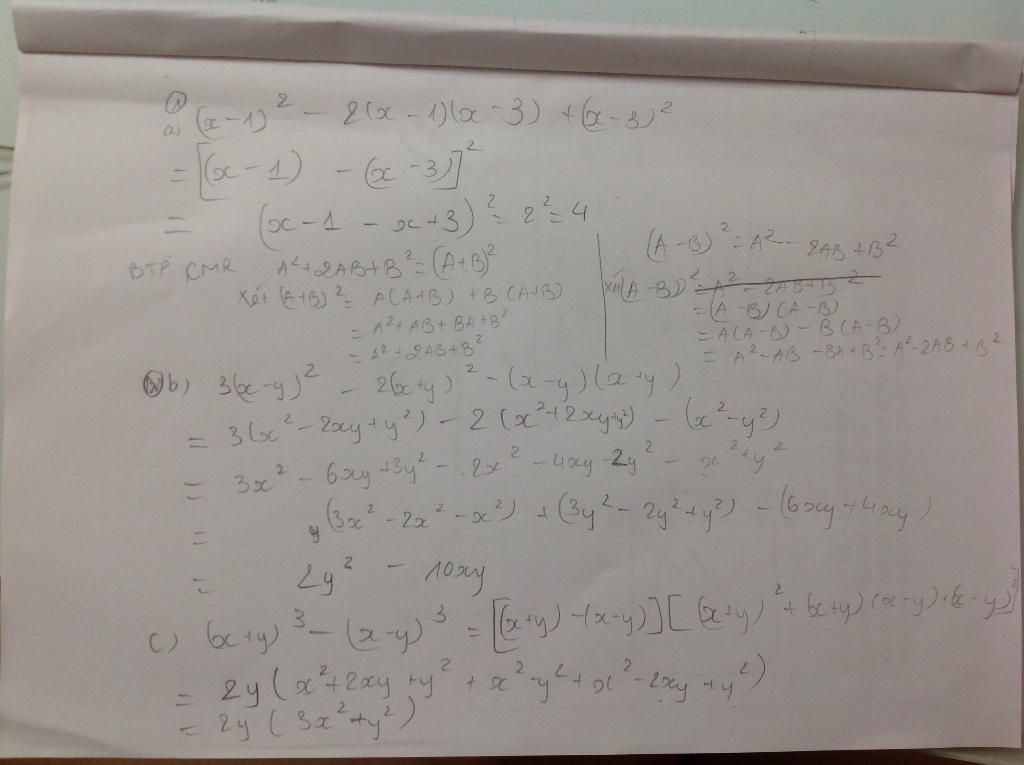 ①
a) (x-1)² - 2(x-1)(x-3) + (x-3)²
= [(x-1) - (x-3)]²
= (x-1-x+3)² = 2² = 4
BTP CMR A²+2AB+B² = (A+B)²
Xét (A+B)² = A(A+B) + B(A+B)
= A²+AB+BA+B²
= A²+2AB+B²
(A-B)² = A² - 2AB + B²
xét (A-B)² = A² - 2AB + B²
= (A-B)(A-B)
= A(A-B) - B(A-B)
= A²-AB-BA+B² = A²-2AB+B²
b) 3(x-y)² - 2(x+y)² - (x-y)(x+y)
= 3(x²-2xy+y²) - 2(x²+2xy+y²) - (x²-y²)
= 3x² - 6xy + 3y² - 2x² - 4xy - 2y² - x² + y²
= (3x² - 2x² - x²) + (3y² - 2y² + y²) - (6xy + 4xy)
= 2y² - 10xy
c) (x+y)³ - (x-y)³ = [(x+y) - (x-y)][(x+y)² + (x+y)(x-y) + (x-y)²]
= 2y(x²+2xy+y² + x²-y² + x²-2xy+y²)
= 2y(3x²+y²)